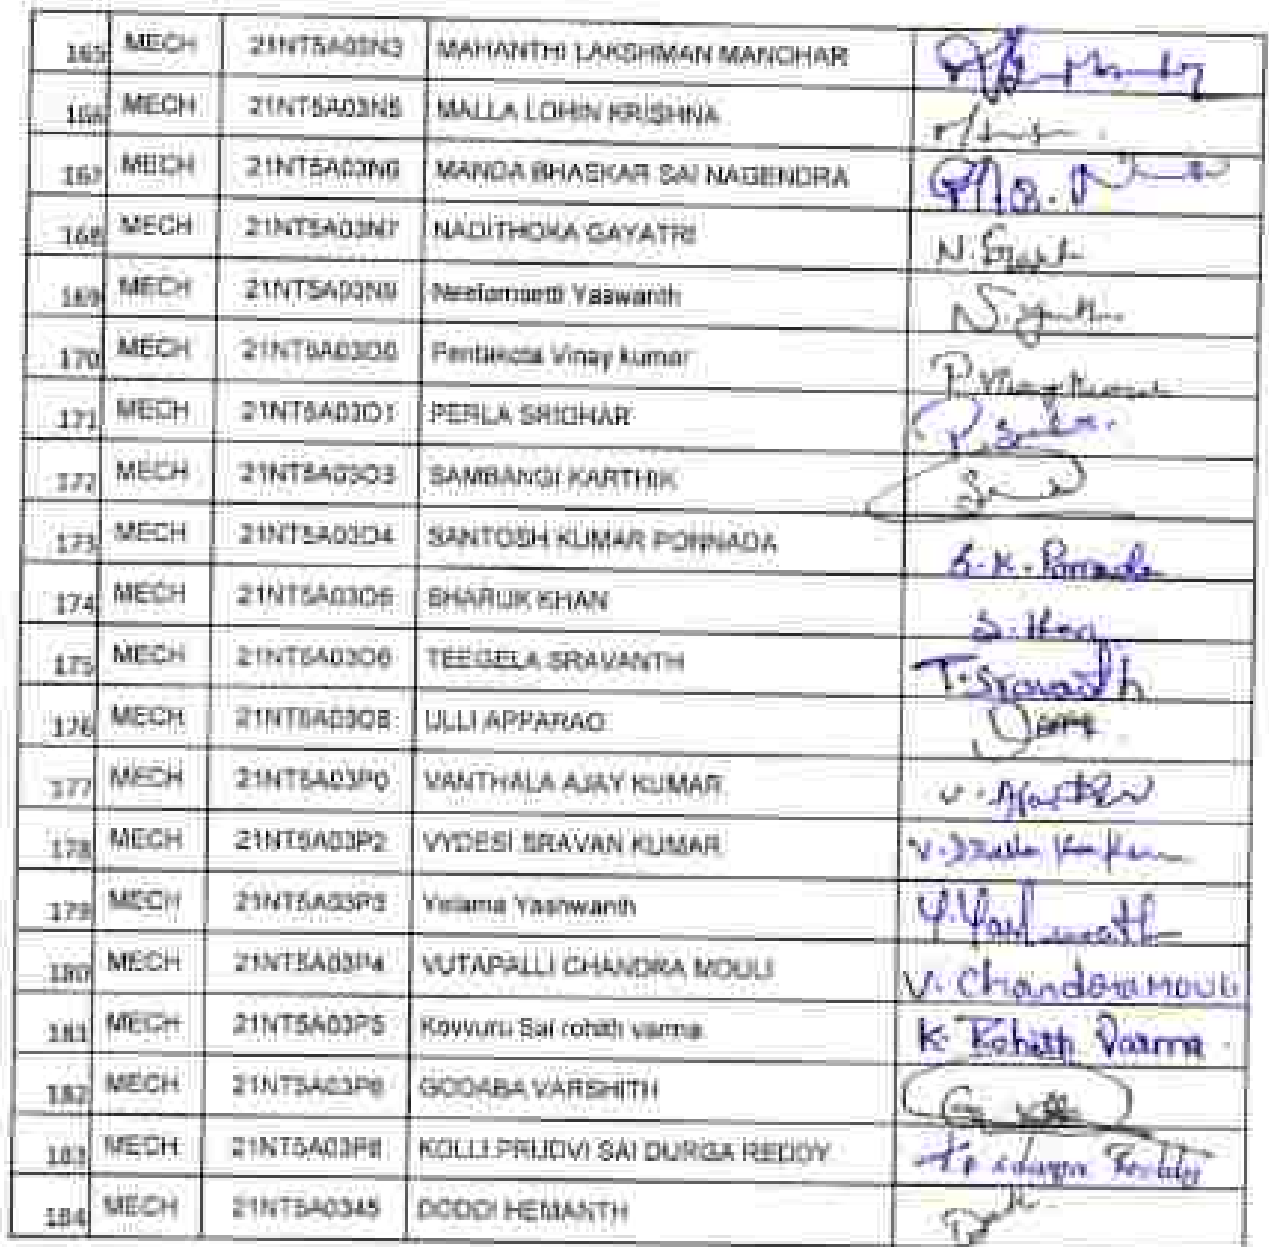 165 MECH 21NT5A03N3 MAHANTHI LAKSHMAN MANOHAR
166 MECH 21NT5A03N5 MALLA LOHIN KRISHNA
167 MECH 21NT5A03N6 MANDA BHASKAR SAI NAGENDRA
168 MECH 21NT5A03N7 NADITHOKA GAYATRI
169 MECH 21NT5A03N9 Neelamsetti Yaswanth
170 MECH 21NT5A03O0 Pentakota Vinay kumar P. Vinay Kumar
171 MECH 21NT5A03O1 PERLA SRIDHAR
172 MECH 21NT5A03O3 SAMBANGI KARTHIK
173 MECH 21NT5A03O4 SANTOSH KUMAR PONNADA S.K. Ponnada
174 MECH SHARUK KHAN S. Khan
175 MECH 21NT5A03O6 TEEGELA SRAVANTH T. Sravanth
176 MECH 21NT5A03O8 ULLI APPARAO
177 MECH 21NT5A03P0 VANTHALA AJAY KUMAR
178 MECH 21NT5A03P2 VYDESI SRAVAN KUMAR
179 MECH 21NT5A03P3 Yelama Yashwanth Y. Yashwanth
180 MECH 21NT5A03P4 VUTAPALLI CHANDRA MOULI V. Chandra MOULI
181 MECH 21NT5A03P5 Kovvuru Sai rohith varma K. Rohith Varma
182 MECH 21NT5A03P6 GODABA VARSHITH
183 MECH 21NT5A03P8 KOLLI PRUDVI SAI DURGA REDDY
184 MECH 21NT5A0345 DODDI HEMANTH